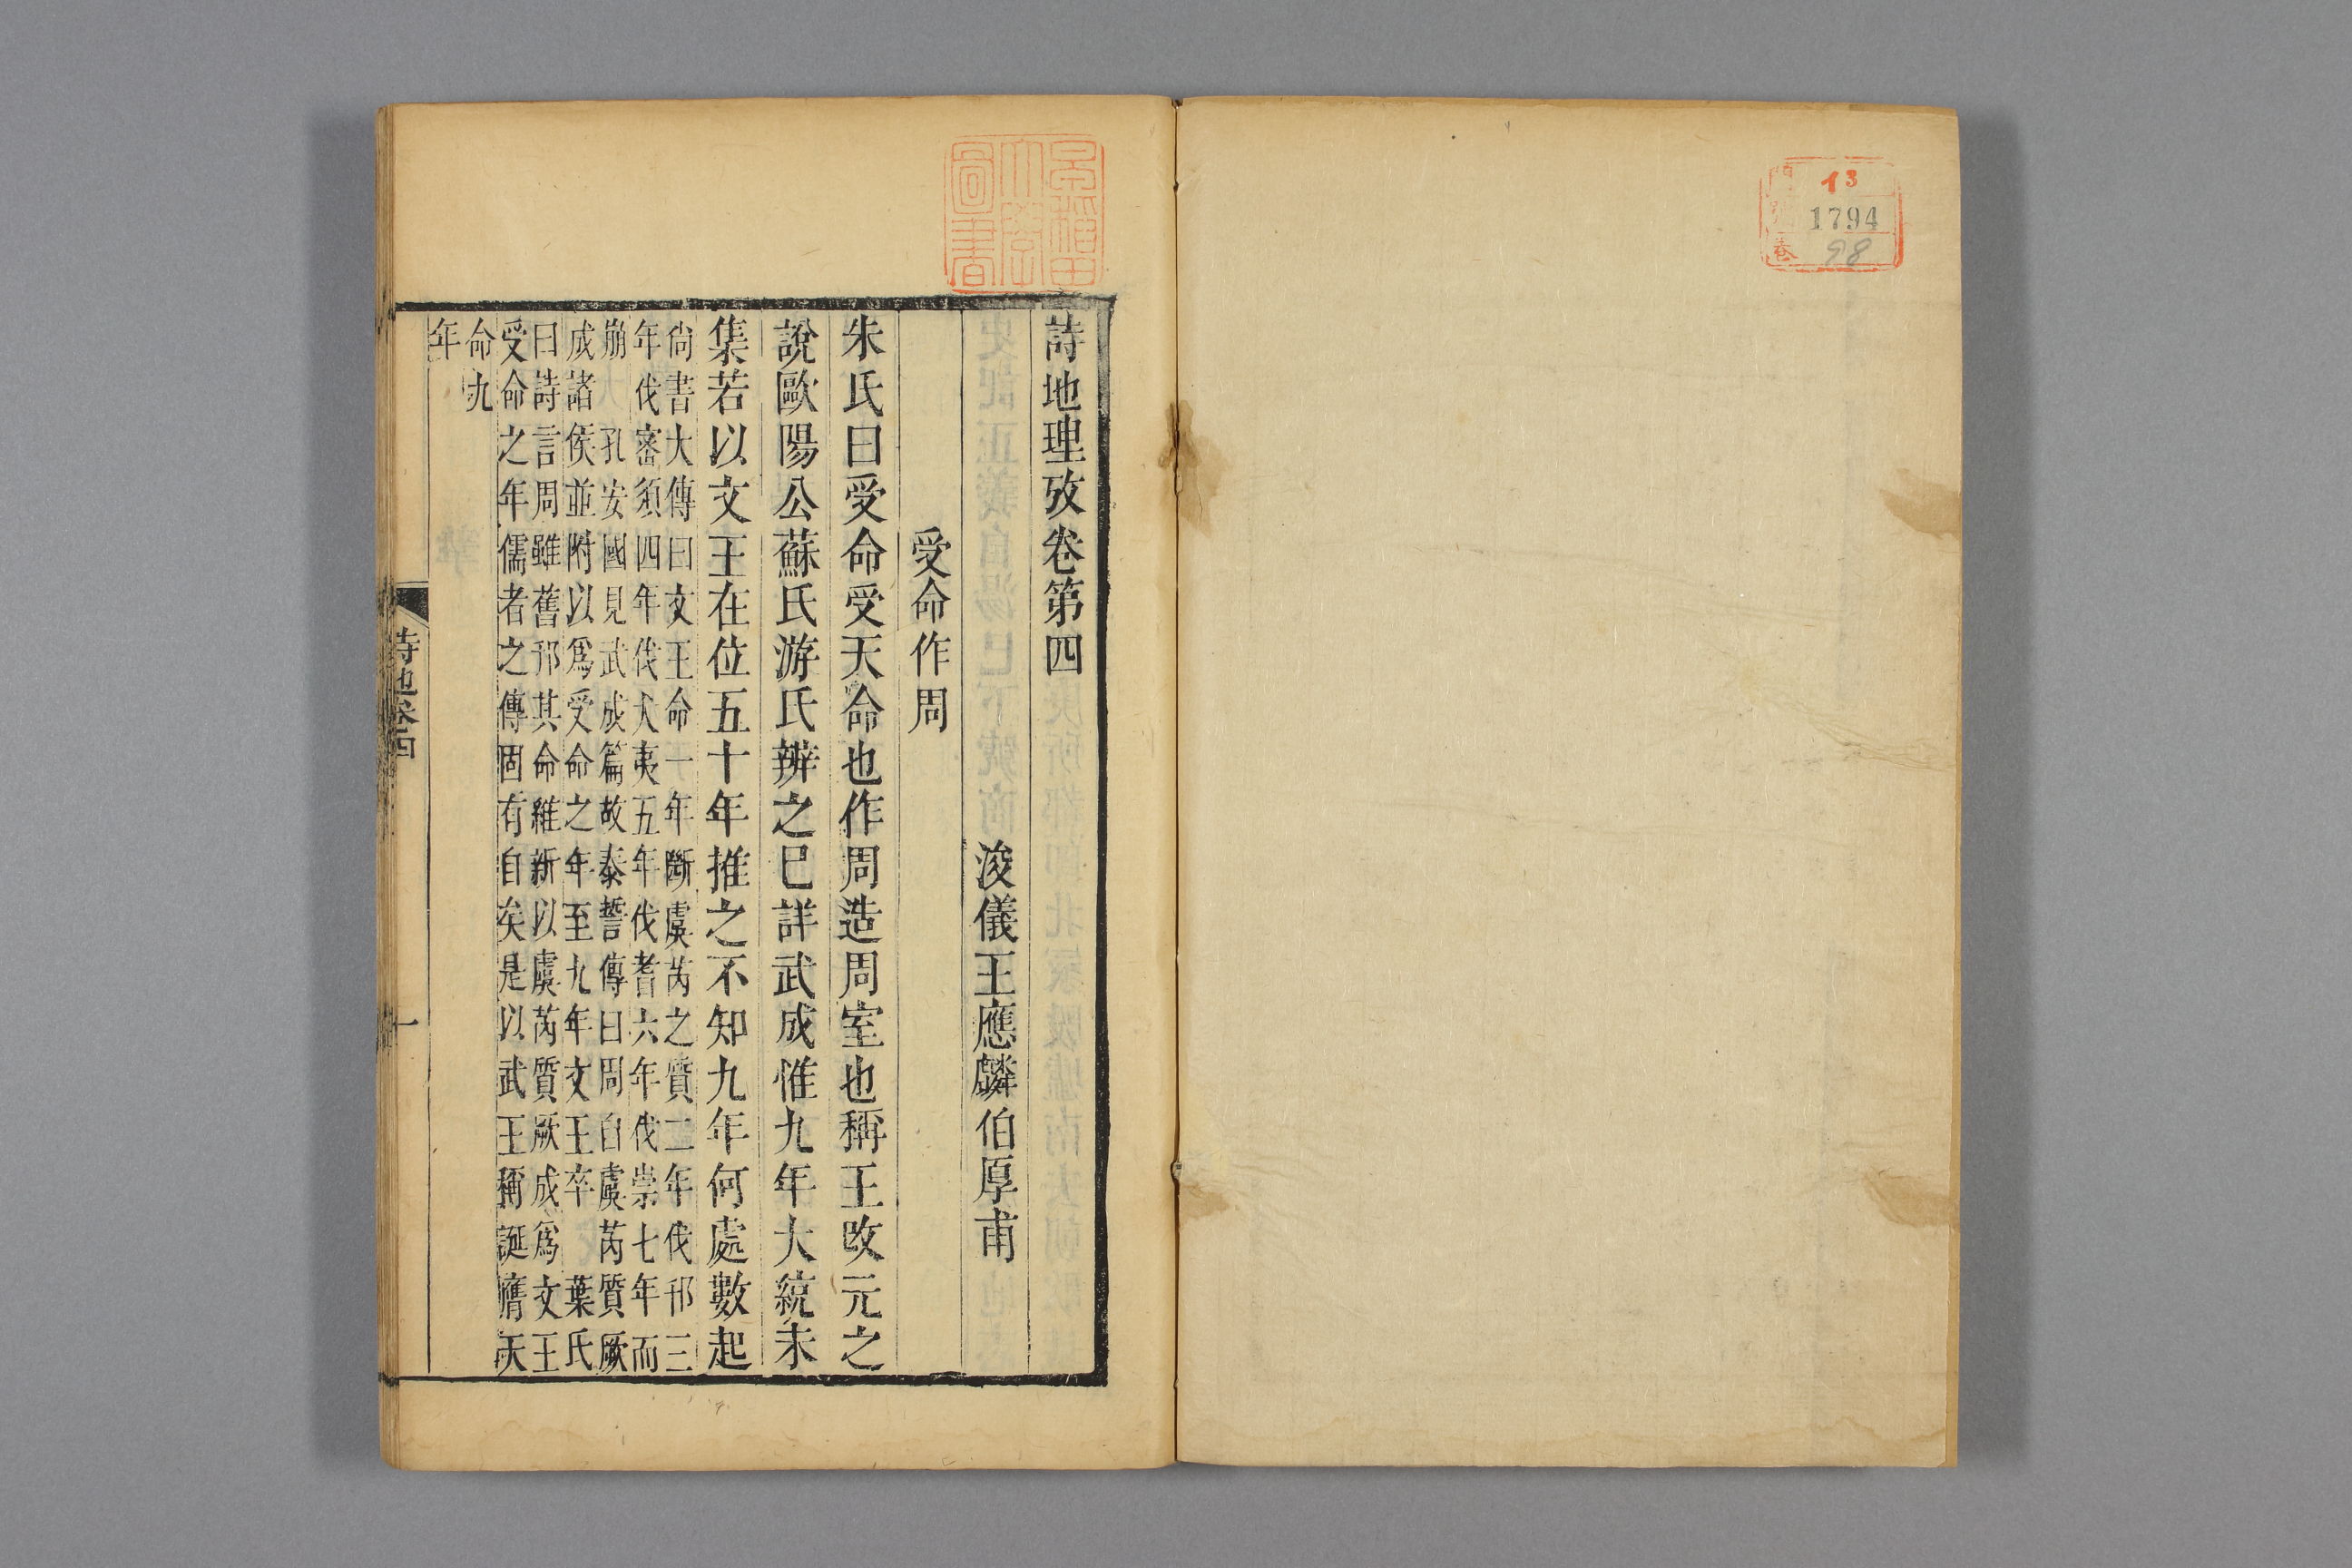 門 13
號 1794
卷 98
早稻田
大學
圖書
詩地理攷卷第四
浚儀王應麟伯厚甫
受命作周
朱氏曰受命受天命也作周造周室也稱王改元之
說歐陽公蘇氏游氏辨之巳詳武成惟九年大統未
集若以文王在位五十年推之不知九年何處數起
尙書大傳曰文王命一年斷虞芮之質二年伐邘三
年伐密須四年伐犬夷五年伐耆六年伐崇七年而
崩 孔安國見武成篇故泰誓傳曰周自虞芮質厥
成諸侯並附以爲受命之年至九年文王卒 葉氏
曰詩言周雖舊邦其命維新以虞芮質厥成爲文王
受命之年儒者之傳固有自矣是以武王稱誕膺天
命九
年
詩地卷四 一